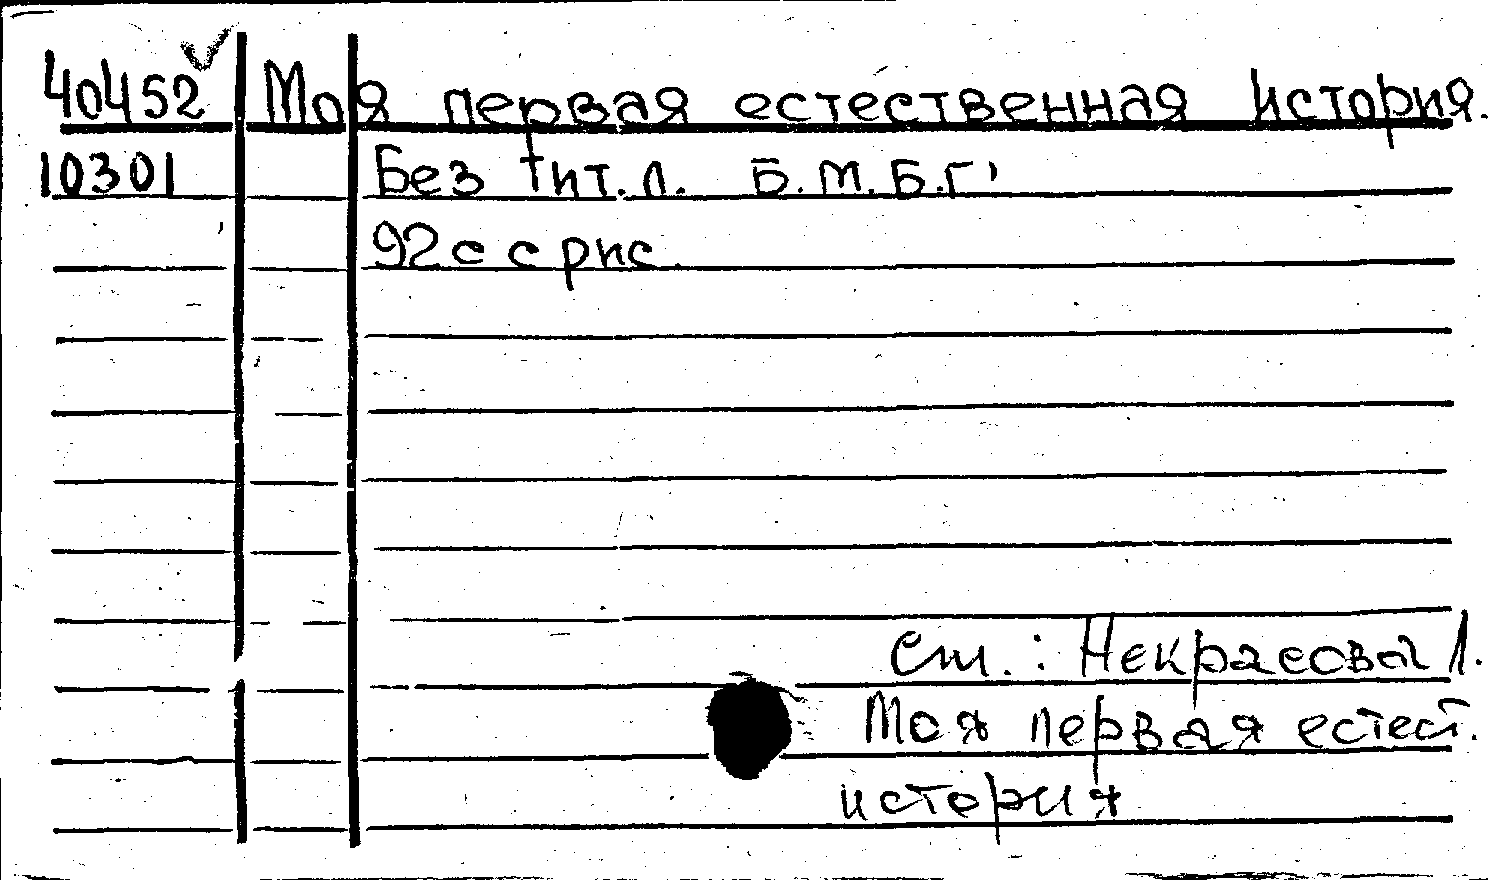 40452 Моя первая естественная история.
10301 Без тит. л. Б.М.Б.Г.
92 с с рис.
Ст.: Некрасова Л.
Моя первая естест.
история